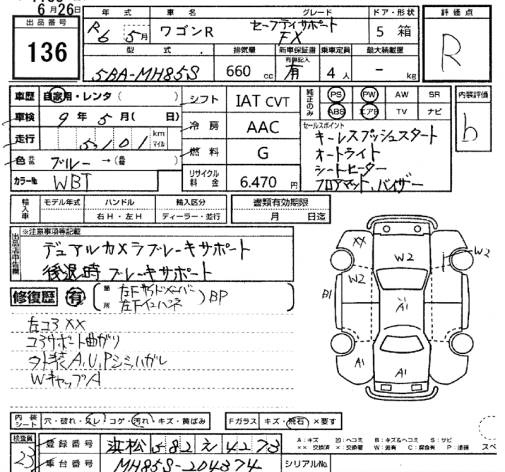 6月26日
出品番号
136
年式 車名 グレード ドア・形状 評価点
R6 5月 ワゴンR セーフティサポート FX 5 箱 R
型式 排気量 新車保証書 乗車定員 最大積載量
5BA-MH85S 660cc 有 4人 -kg
車歴 自家用・レンタ( ) シフト IAT CVT 純正のみ PS PW AW SR 内装評価
車検 9年5月( 日) ABS エアB TV ナビ b
冷房 AAC セールスポイント
キーレスプッシュスタート
走行 5,101 km マイル オートライト
燃料 G シートヒーター
色 ブルー→ フロアマット、バイザー
カラーNo. WBT リサイクル料金 6.470円
輸入車 モデル年式 ハンドル 輸入区分 書類有効期限
右H・左H ディーラー・並行 月 日迄
※注意事項等記載
デュアルカメラブレーキサポート
後退時ブレーキサポート
修復歴 有 箇所 左Fサイドメンバー 左Fインパネ BP
左コアXX
コアサポート曲がり
外装A,U,Pシミハガレ
WキャップA
XX W2 W2
W2
B1 A1
A1 A1
内装シート 穴・破れ・スレ・コゲ・汚れ・キズ・黄ばみ Fガラス キズ・飛石 ×要す
A:キズ U:ヘコミ B:キズ&ヘコミ S:サビ
××:交換済 X:交換要 W:波有 C:腐食有 P:塗装 スペ
検査員 23 登録番号 浜松 582 え 4273
車台番号 MH85S-204374 シリアルNo.